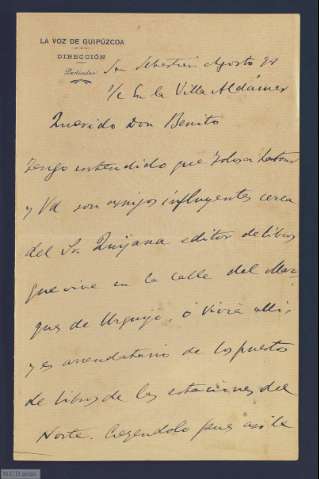 LA VOZ DE GUIPÚZCOA
DIRECCIÓN
Particular
Sn Sebastián Agosto
S/c En la Villa Aldámar
Querido Don Benito
Tengo entendido que Tolosa Latour
y Vd son amigos influyentes cerca
del Sr Quijana editor de libros
que vive en la calle del Mar
ques de Urquijo, ó vivia alli
y es arrendatario de los puestos
de libros de las estaciones del
Norte. Creyendolo pues asi le